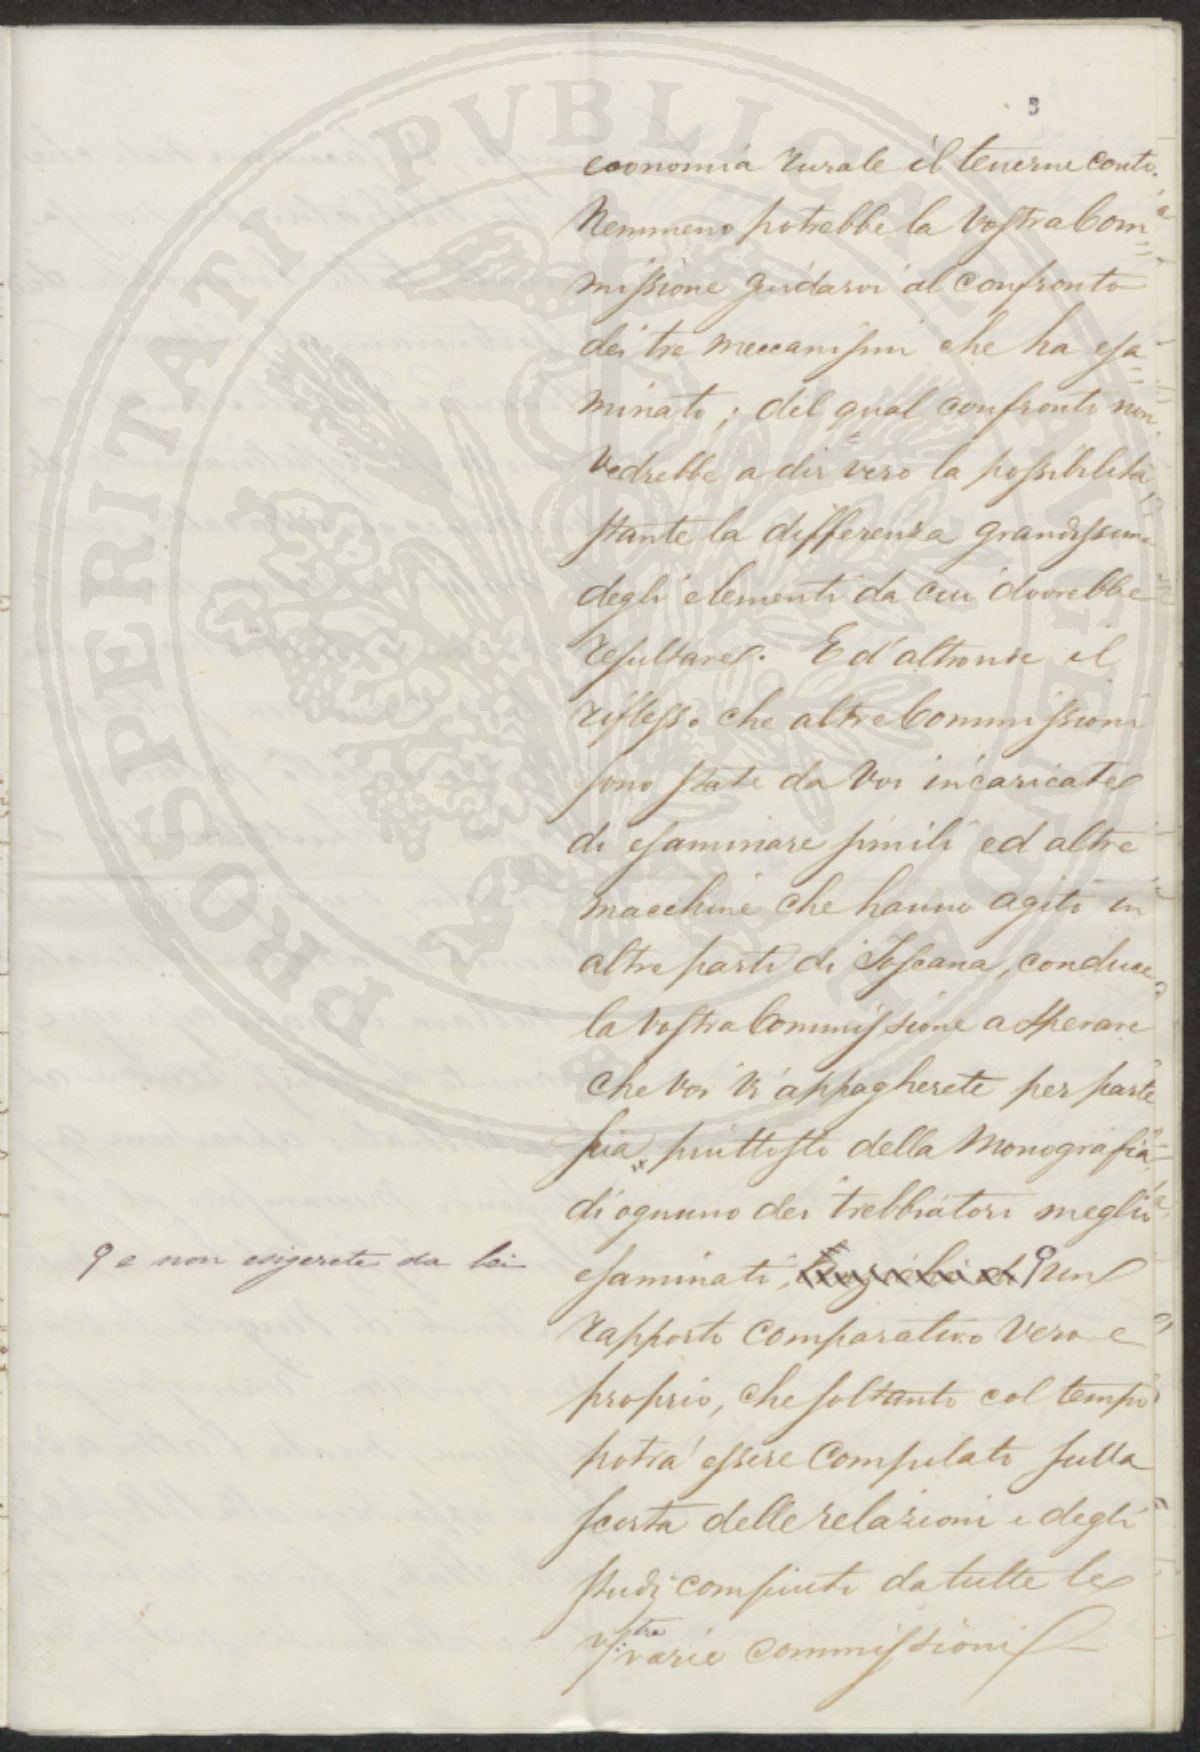 PROSPERITATI PVBLICAE AVGENDAE
3
economia rurale il tenerne conto.
Nemmeno potrebbe la vostra Com=
missione guidarvi al confronto
dei tre meccanismi che ha esa=
minato; del qual confronto non
vedrebbe a dir vero la possibilità
stante la differenza grandissima
degli elementi da cui dovrebbe
resultare. Ed altronde il
riflesso che altre Commissioni
sono state da Voi incaricate
di esaminare simili ed altre
macchine che hanno agito in
altre parti di Toscana, conduce
la vostra Commissione a sperare
che voi vi appagherete per parte
sua, piuttosto della Monografia
di ognuno dei trebbiatori meglio
e non esigerete da lei
esaminati, un
rapporto comparativo vero e
proprio, che soltanto col tempo
potrà essere compilato sulla
scorta delle relazioni e degli
studj compiuti da tutte le
V.tre varie commissioni